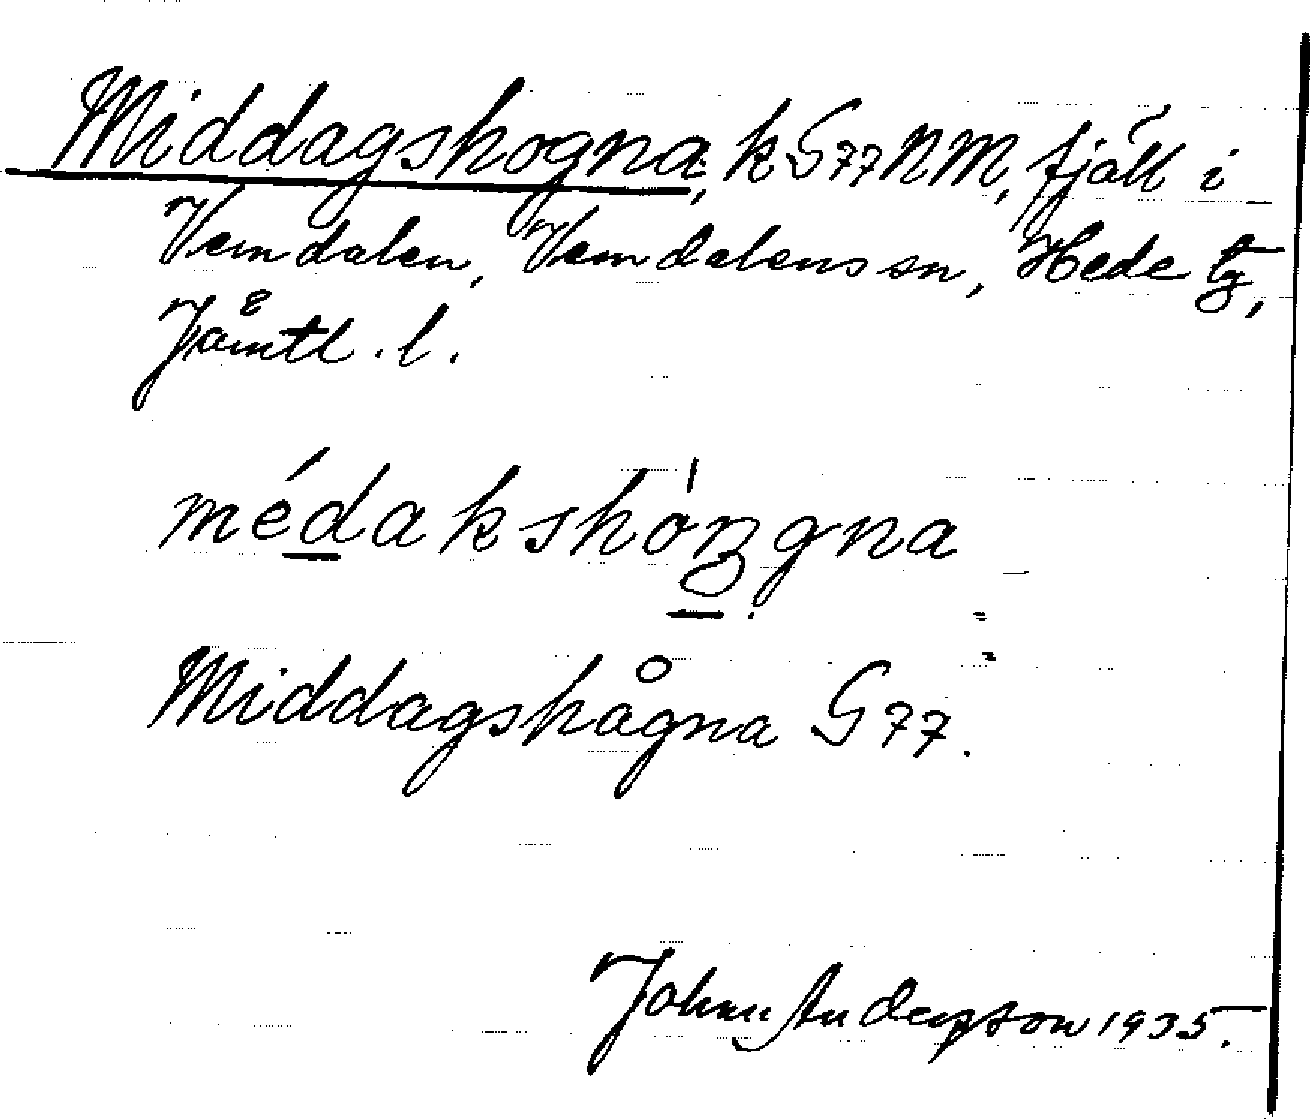 Middagshogna, k G77NM, fjäll i
Vemdalen, Vemdalens sn, Hede tg,
Jämtl. l.
médakshóŋgna
Middagshågna G77.
John Anderson 1935.